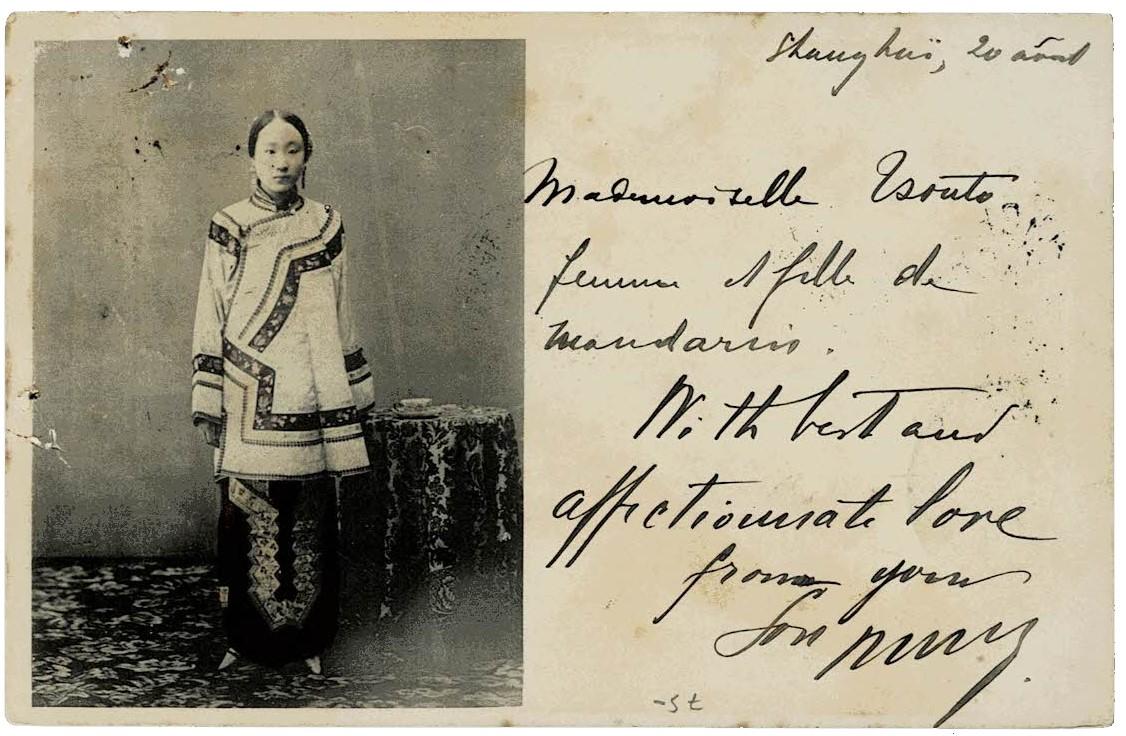 Shanghaï, 20 août
Mademoiselle Tsouto
femme et fille de
mandarin.
With best and
affectionnate love
from your
Son